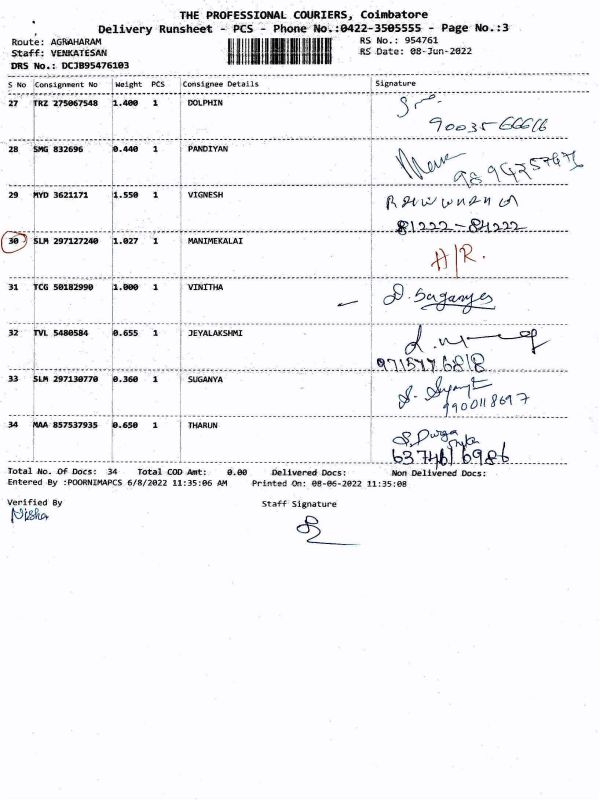 THE PROFESSIONAL COURIERS, Coimbatore
Delivery Runsheet - PCS - Phone No.:0422-3505555 - Page No.:3
Route: AGRAHARAM RS No.: 954761
Staff: VENKATESAN RS Date: 08-Jun-2022
DRS No.: DCJB95476103
S No Consignment No Weight PCS Consignee Details Signature
27 TRZ 275067548 1.400 1 DOLPHIN
28 SMG 832696 0.440 1 PANDIYAN
29 MYD 3621171 1.550 1 VIGNESH
81222-84222
30 SLM 297127240 1.027 1 MANIMEKALAI H/R.
31 TCG 50182990 1.000 1 VINITHA
32 TVL 5480584 0.655 1 JEYALAKSHMI
33 SLM 297130770 0.360 1 SUGANYA
9900118697
34 MAA 857537935 0.650 1 THARUN S. Durga
Total No. Of Docs: 34 Total COD Amt: 0.00 Delivered Docs: Non Delivered Docs:
Entered By :POORNIMAPCS 6/8/2022 11:35:06 AM Printed On: 08-06-2022 11:35:08
Verified By Staff Signature
Nisha